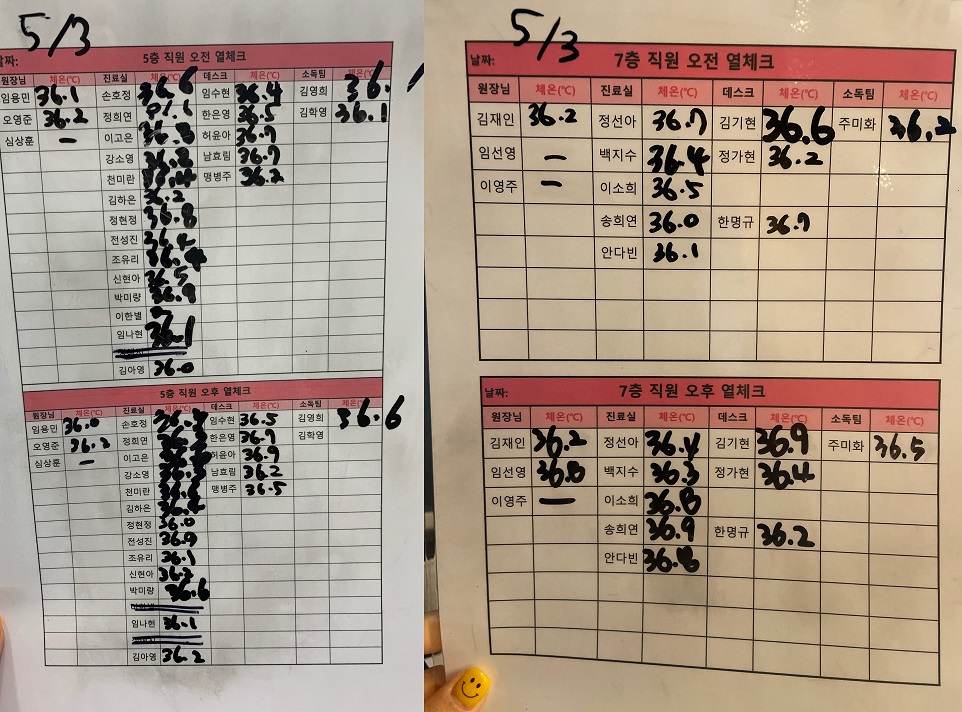 5/3
날짜: 5층 직원 오전 열체크
원장님 체온(℃) 진료실 체온(℃) 데스크 체온(℃) 소독팀 체온(℃)
임용민 36.1 손호정 36.6 임수현 36.4 김영희 36.
오영준 36.2 정희연 한은영 36.5 김학영 36.1
심상훈 - 이고은 36.8 허윤아 36.7
강소영 36.8 남효림 36.7
천미란 맹병주 36.2
김하은 36.2
정현정 36.8
전성진
조유리 36.4
신현아 36.5
박미량 36.9
이한별
임나현 36.1
김아영 36.0
5층 직원 오후 열체크
원장님 체온(℃) 진료실 체온(℃) 데스크 체온(℃) 소독팀 체온(℃)
임용민 36.0 손호정 임수현 36.5 김영희 36.6
오영준 36.2 정희연 한은영 36.7 김학영
심상훈 - 이고은 허윤아 36.9
강소영 남효림 36.2
천미란 맹병주 36.5
김하은 36.4
정현정 36.0
전성진 36.9
조유리 36.1
신현아
박미량 36.6
임나현 36.1
김아영 36.2
5/3
날짜: 7층 직원 오전 열체크
원장님 체온(℃) 진료실 체온(℃) 데스크 체온(℃) 소독팀 체온(℃)
김재인 36.2 정선아 36.7 김기현 36.6 주미화 36.2
임선영 - 백지수 36.4 정가현 36.2
이영주 - 이소희 36.5
송희연 36.0 한명규 36.7
안다빈 36.1
날짜: 7층 직원 오후 열체크
원장님 체온(℃) 진료실 체온(℃) 데스크 체온(℃) 소독팀 체온(℃)
김재인 36.2 정선아 36.4 김기현 36.9 주미화 36.5
임선영 36.0 백지수 36.3 정가현 36.4
이영주 - 이소희 36.8
송희연 36.9 한명규 36.2
안다빈 36.8